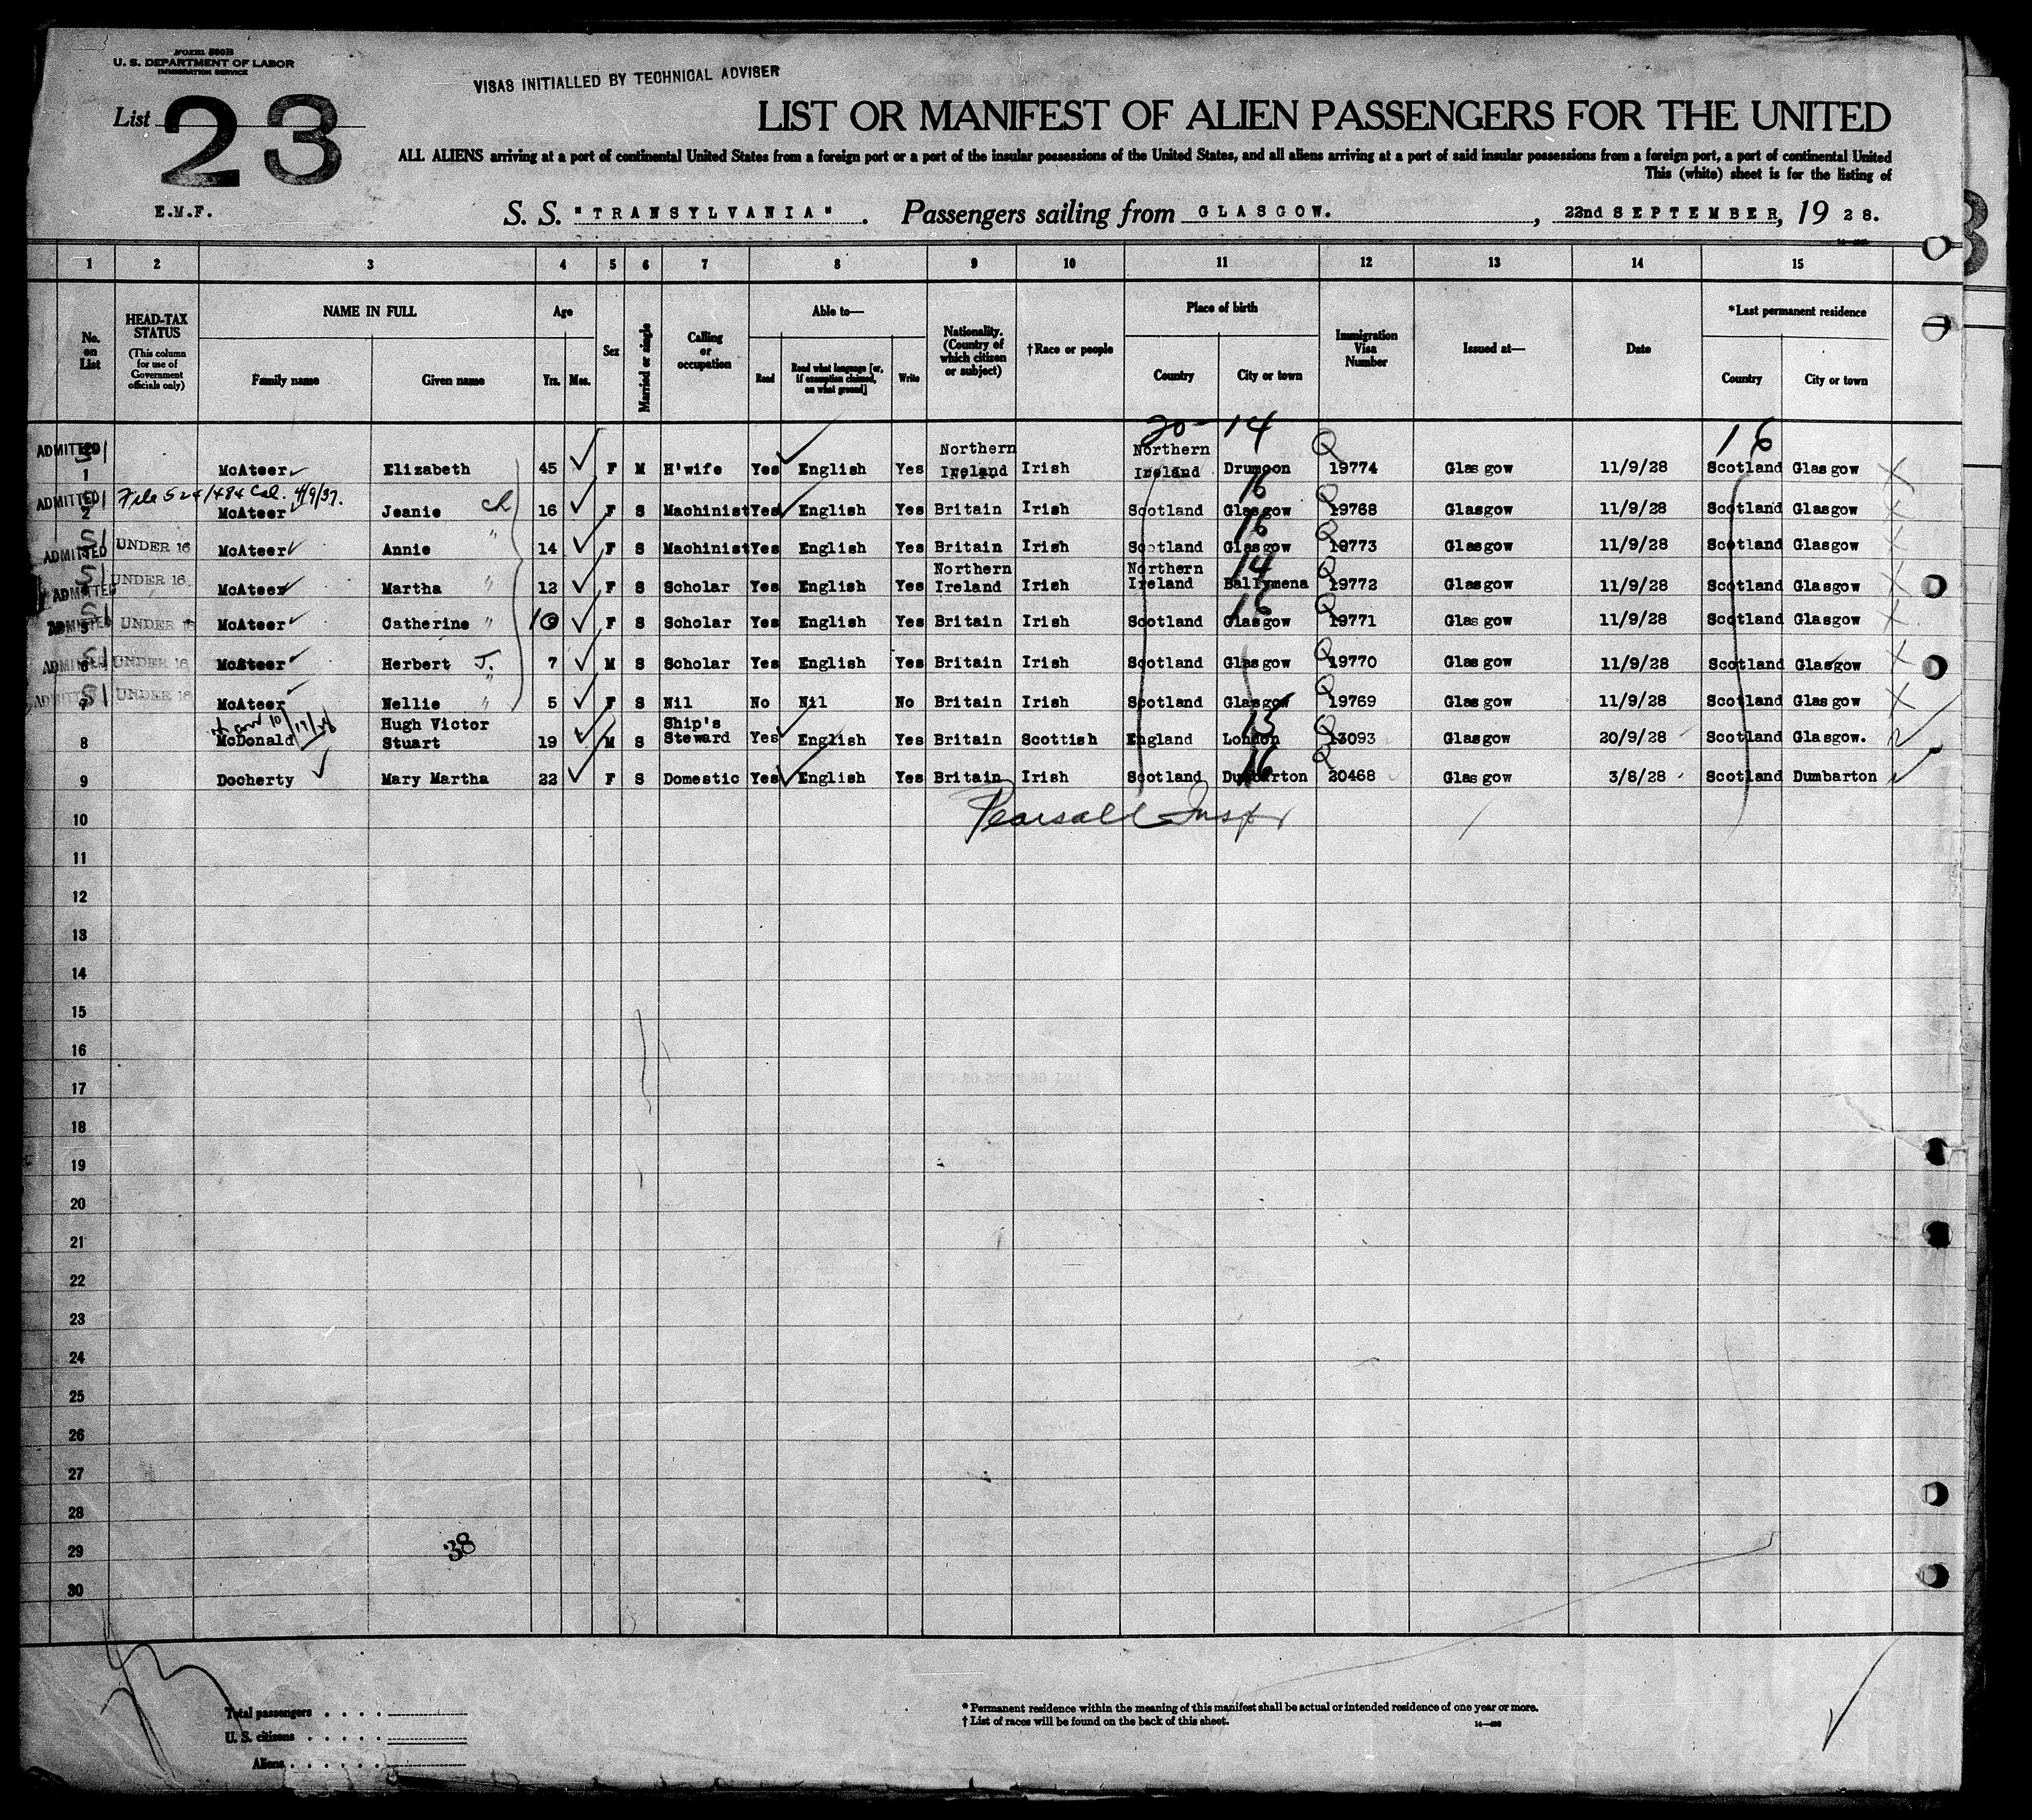 Form 500B
U. S. DEPARTMENT OF LABOR
IMMIGRATION SERVICE
VISAS INITIALLED BY TECHNICAL ADVISER
List 23
LIST OR MANIFEST OF ALIEN PASSENGERS FOR THE UNITED
ALL ALIENS arriving at a port of continental United States from a foreign port or a port of the insular possessions of the United States, and all aliens arriving at a port of said insular possessions from a foreign port, a port of continental United
This (white) sheet is for the listing of
E.M.F.
S. S. "TRANSYLVANIA". Passengers sailing from GLASGOW. , 22nd SEPTEMBER, 19 28.
1 2 3 4 5 6 7 8 9 10 11 12 13 14 15
No. on List
HEAD-TAX STATUS (This column for use of Government officials only)
NAME IN FULL
Family name Given name
Age
Yrs. Mos.
Sex
Married or single
Calling or occupation
Able to—
Read Read what language [or, if exemption claimed, on what ground] Write
Nationality. (Country of which citizen or subject)
†Race or people
Place of birth
Country City or town
Immigration Visa Number
Issued at—
Date
*Last permanent residence
Country City or town
20-14 Q 16
ADMITTED 1 McAteer Elizabeth 45 F M H'wife Yes English Yes Northern Ireland Irish Northern Ireland Drumoon 19774 Glasgow 11/9/28 Scotland Glasgow
File 524/484 Cal. 4/9/37. Ch 16 Q
ADMITTED 2 McAteer Jeanie 16 F S Machinist Yes English Yes Britain Irish Scotland Glasgow 19768 Glasgow 11/9/28 Scotland Glasgow
16 Q
ADMITTED UNDER 16 McAteer Annie " 14 F S Machinist Yes English Yes Britain Irish Scotland Glasgow 19773 Glasgow 11/9/28 Scotland Glasgow
14 Q
ADMITTED UNDER 16 McAteer Martha " 12 F S Scholar Yes English Yes Northern Ireland Irish Northern Ireland Ballymena 19772 Glasgow 11/9/28 Scotland Glasgow
16 Q
ADMITTED 5 UNDER 16 McAteer Catherine " 10 F S Scholar Yes English Yes Britain Irish Scotland Glasgow 19771 Glasgow 11/9/28 Scotland Glasgow
Q
ADMITTED 6 UNDER 16 McAteer Herbert J. " 7 M S Scholar Yes English Yes Britain Irish Scotland Glasgow 19770 Glasgow 11/9/28 Scotland Glasgow
Q
ADMITTED 7 UNDER 16 McAteer Nellie " 5 F S Nil No Nil No Britain Irish Scotland Glasgow 19769 Glasgow 11/9/28 Scotland Glasgow
15 Q
8 McDonald Hugh Victor Stuart 19 M S Ship's Steward Yes English Yes Britain Scottish England London 13093 Glasgow 20/9/28 Scotland Glasgow.
16 Q
9 Docherty Mary Martha 22 F S Domestic Yes English Yes Britain Irish Scotland Dumbarton 20468 Glasgow 3/8/28 Scotland Dumbarton
Pearsall Insp
10
11
12
13
14
15
16
17
18
19
20
21
22
23
24
25
26
27
28
29
38
30
Total passengers
U. S. citizens
Aliens
* Permanent residence within the meaning of this manifest shall be actual or intended residence of one year or more.
† List of races will be found on the back of this sheet.